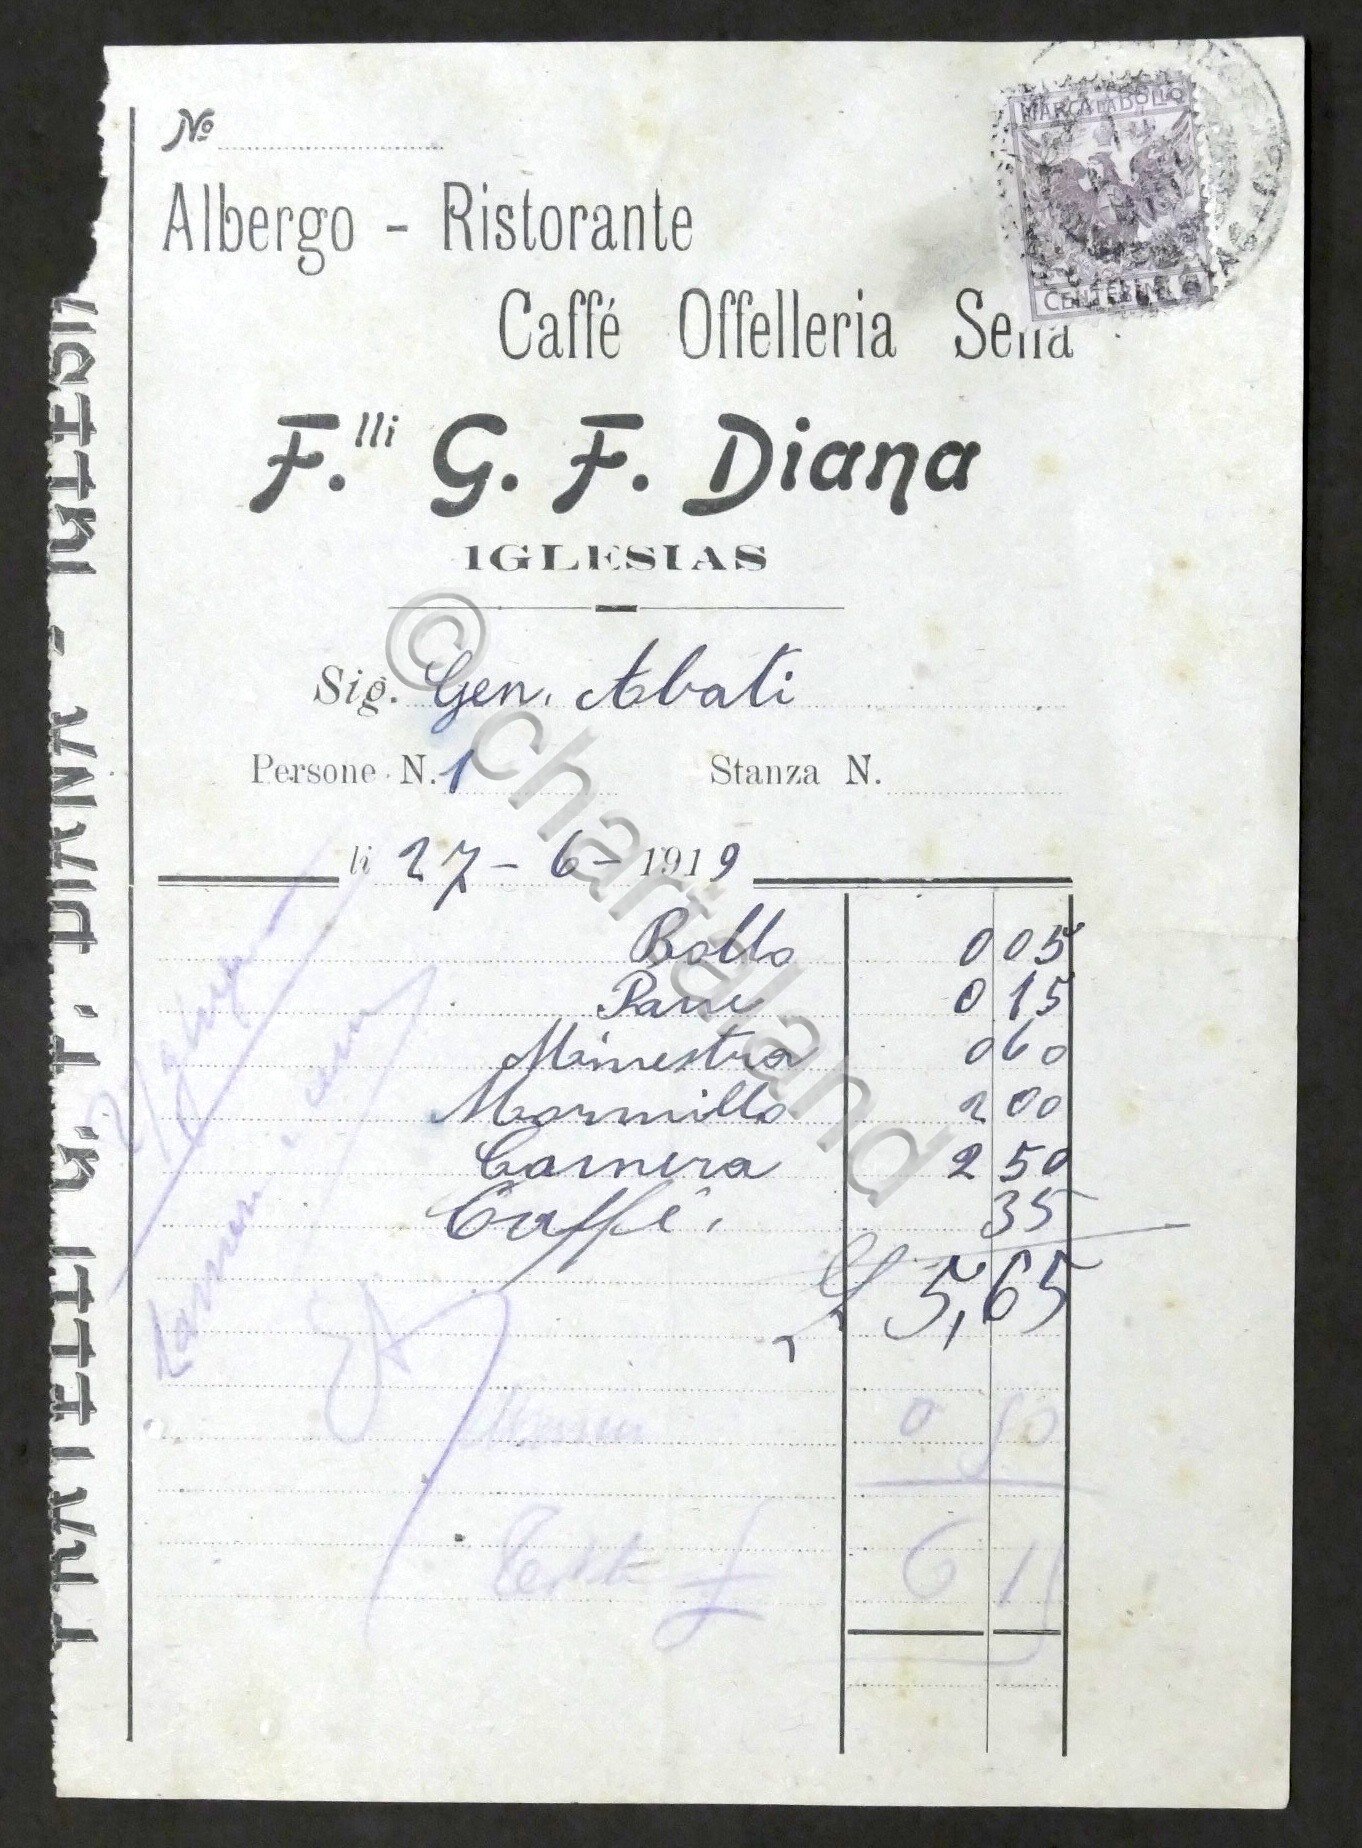 Nº
MARCA DA BOLLO
CENTESIMI
Albergo - Ristorante
Caffé Offelleria Sella
F.lli G. F. Diana
IGLESIAS
Sig. Gen. Abati
Persone N. 1 Stanza N.
li 27 - 6 - 1919
Bollo 0 05
Pane 0 15
Minestra 0 60
Mormillo 2 00
Camera 2 50
Caffé 35
£ 5,65
0 50
£ 6 15
FRATELLI G. F. DIANA - IGLESIA
© chartaland